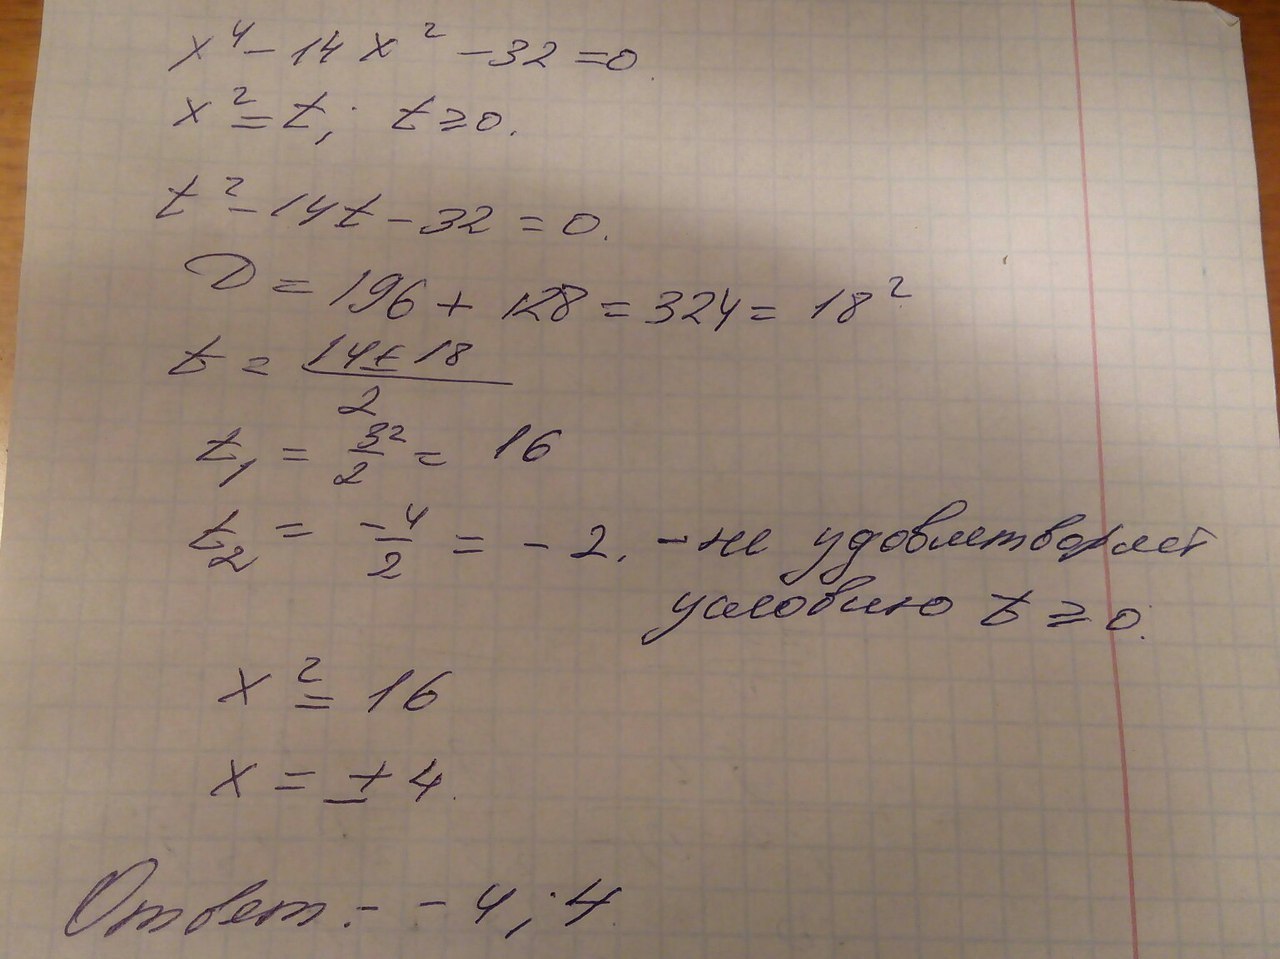 x⁴ - 14x² - 32 = 0.
x² = t; t ≥ 0.
t² - 14t - 32 = 0.
D = 196 + 128 = 324 = 18²
t = (14 ± 18)/2
t₁ = 32/2 = 16
t₂ = -4/2 = -2. - не удовлетворяет
условию t ≥ 0.
x² = 16
x = ± 4.
Ответ: -4; 4.